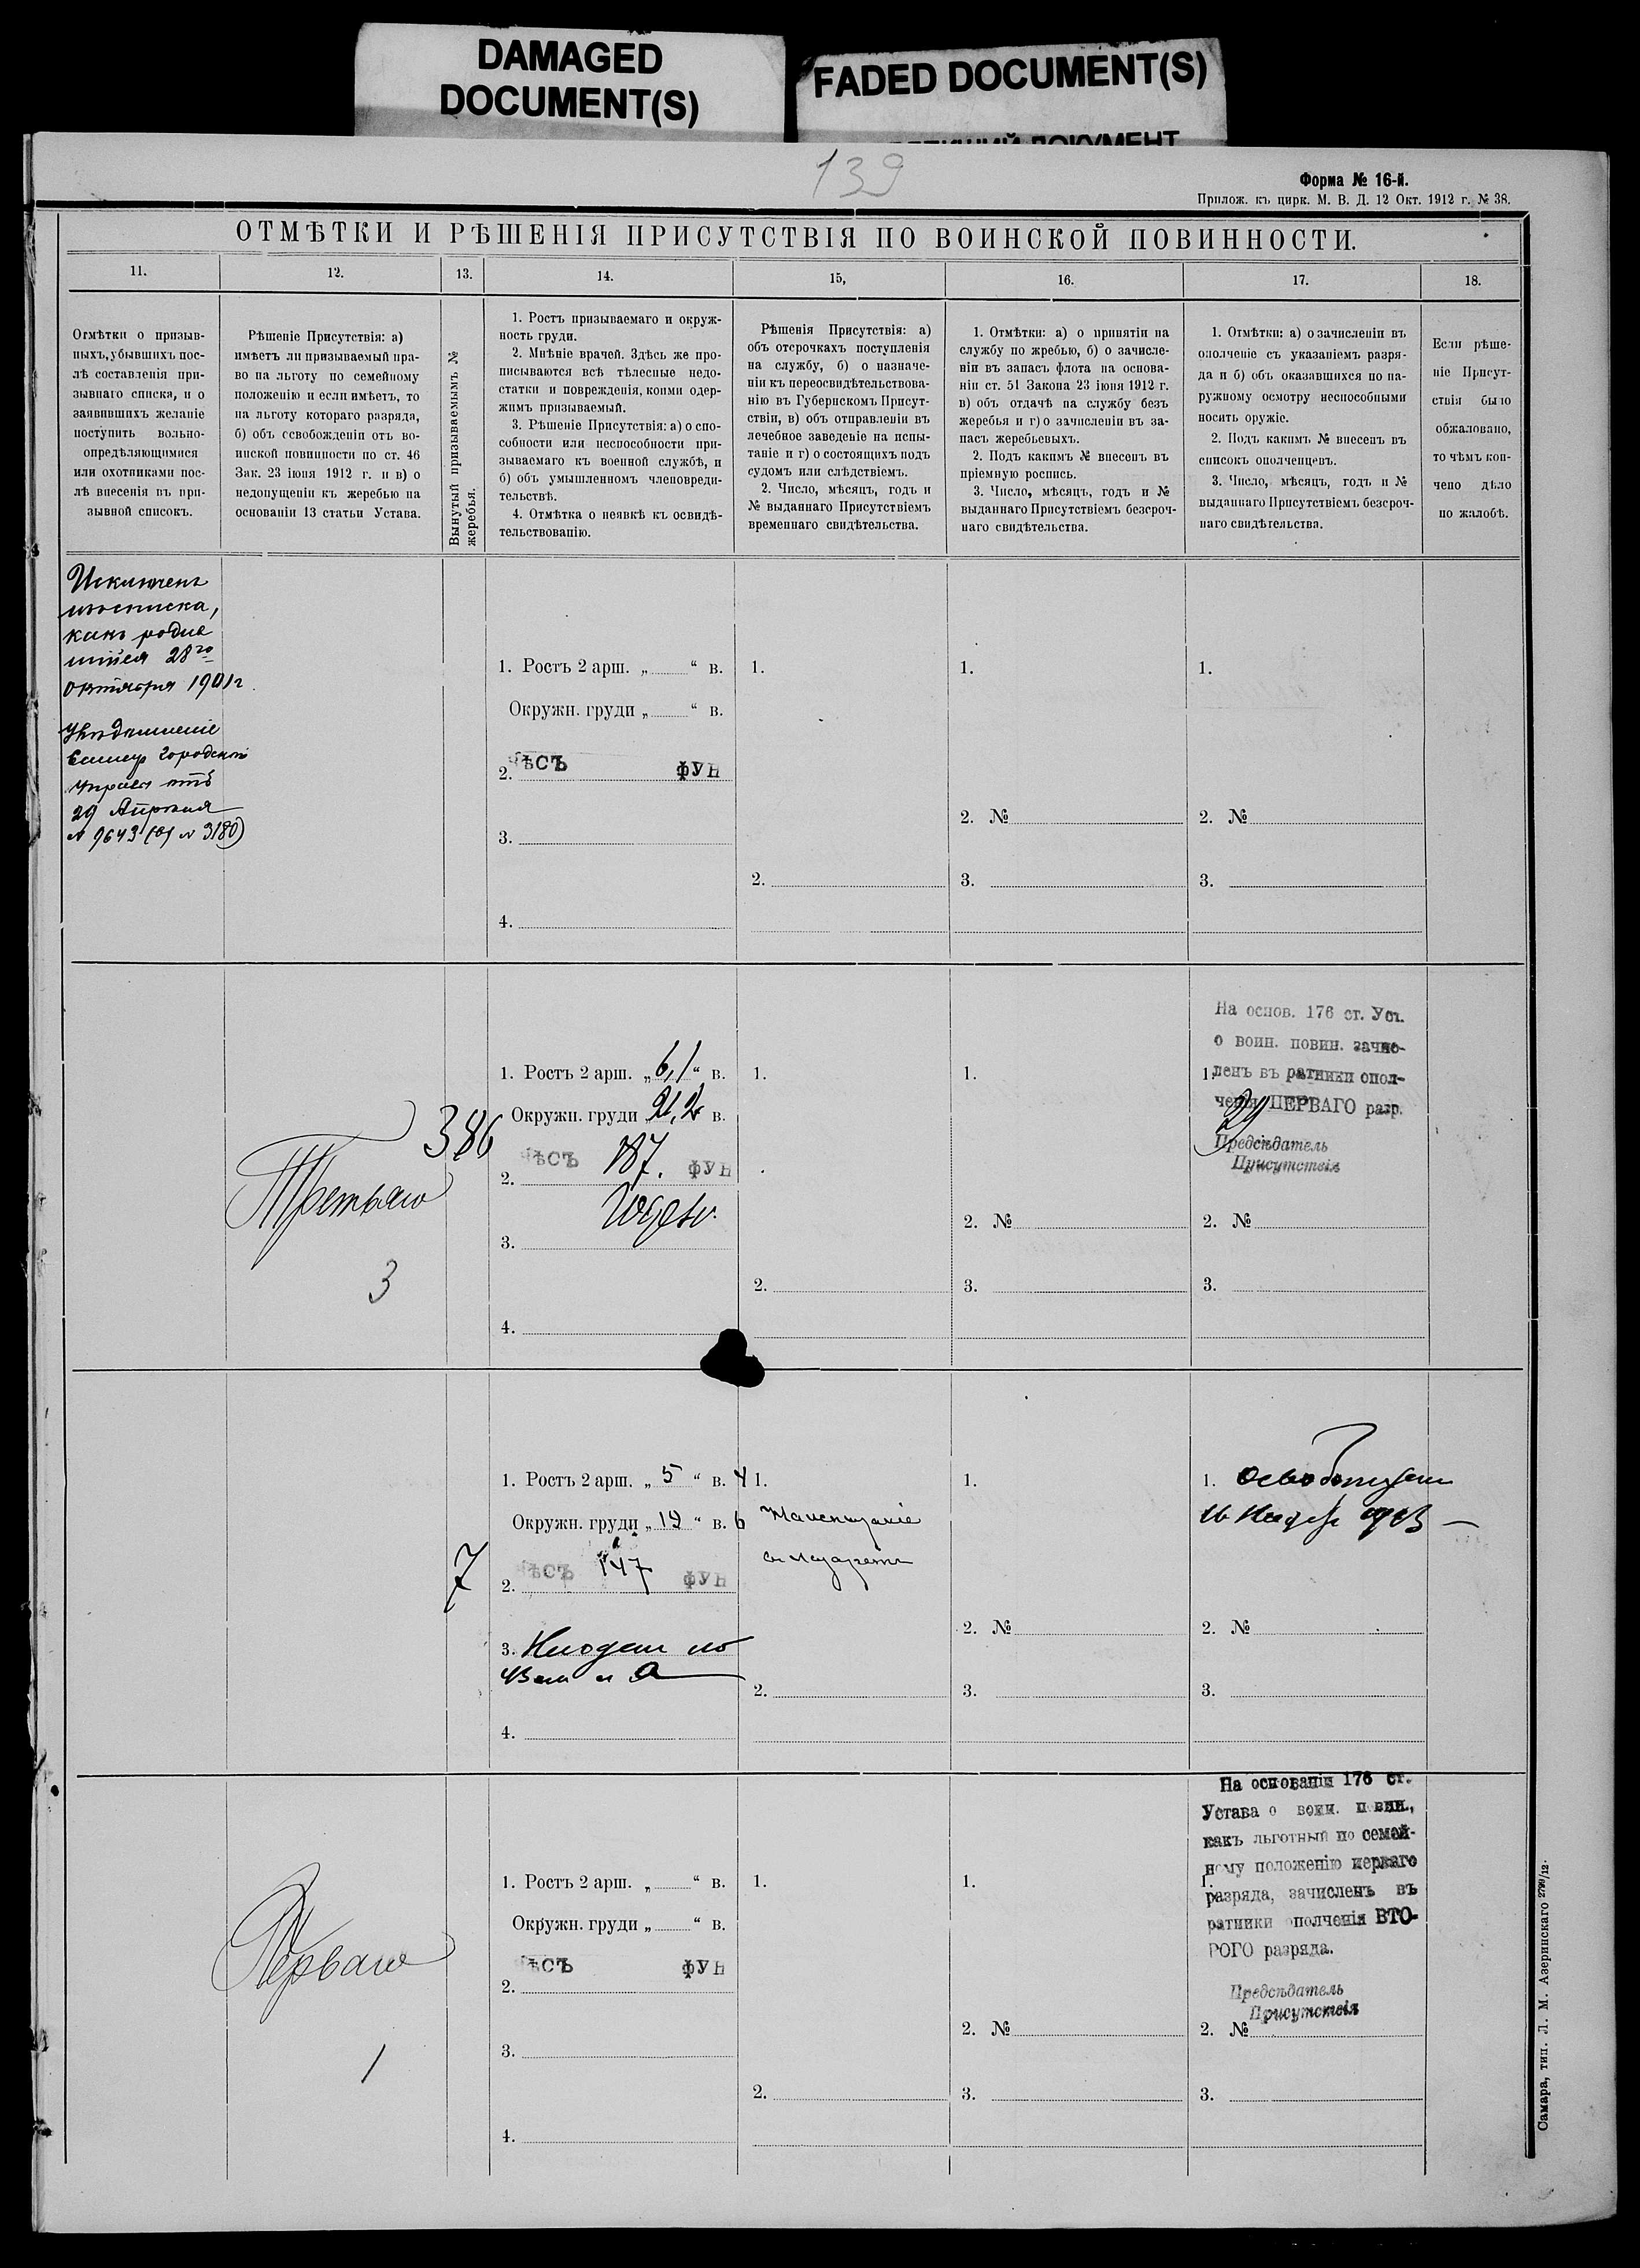 DAMAGED
DOCUMENT(S)
FADED DOCUMENT(S)
ДОКУМЕНТ
139
Форма № 16-й.
Прилож. къ цирк. М. В. Д. 12 Окт. 1912 г. № 38.
ОТМѢТКИ И РѢШЕНІЯ ПРИСУТСТВІЯ ПО ВОИНСКОЙ ПОВИННОСТИ.
11.
12.
13.
14.
15,
16.
17.
18.
Отмѣтки о призыв-
ныхъ, убывшихъ пос-
лѣ составленія при-
зывнаго списка, и о
заявившихъ желаніе
поступить вольно-
опредѣляющимися
или охотниками пос-
лѣ внесенія въ при-
зывной списокъ.
Рѣшеніе Присутствія: а)
имѣетъ ли призываемый пра-
во на льготу по семейному
положенію и если имѣетъ, то
на льготу котораго разряда,
б) объ освобожденіи отъ во-
инской повинности по ст. 46
Зак. 23 іюня 1912 г. и в) о
недопущеніи къ жеребью на
основаніи 13 статьи Устава.
Вынутый призываемымъ №
жеребья.
1. Ростъ призываемаго и окруж-
ность груди.
2. Мнѣніе врачей. Здѣсь же про-
писываются всѣ тѣлесные недо-
статки и поврежденія, коими одер-
жимъ призываемый.
3. Рѣшеніе Присутствія: а) о спо-
собности или неспособности при-
зываемаго къ военной службѣ, и
б) объ умышленномъ членовреди-
тельствѣ.
4. Отмѣтка о неявкѣ къ освидѣ-
тельствованію.
Рѣшенія Присутствія: а)
объ отсрочкахъ поступленія
на службу, б) о назначе-
ніи къ переосвидѣтельствова-
нію въ Губернскомъ Присут-
ствіи, в) объ отправленіи въ
лечебное заведеніе на испы-
таніе и г) о состоящихъ подъ
судомъ или слѣдствіемъ.
2. Число, мѣсяцъ, годъ и
№ выданнаго Присутствіемъ
временнаго свидѣтельства.
1. Отмѣтки: а) о принятіи на
службу по жребью, б) о зачисле-
ніи въ запасъ флота на основа-
ніи ст. 51 Закона 23 іюня 1912 г.
в) объ отдачѣ на службу безъ
жеребья и г) о зачисленіи въ за-
пасъ жеребьевыхъ.
2. Подъ какимъ № внесенъ въ
пріемную роспись.
3. Число, мѣсяцъ, годъ и №
выданнаго Присутствіемъ безсроч-
наго свидѣтельства.
1. Отмѣтки: а) о зачисленіи въ
ополченіе съ указаніемъ разря-
да и б) объ оказавшихся по на-
ружному осмотру неспособными
носить оружіе.
2. Подъ какимъ № внесенъ въ
списокъ ополченцевъ.
3. Число, мѣсяцъ, годъ и №
выданнаго Присутствіемъ безсроч-
наго свидѣтельства.
Если рѣше-
ніе Присут-
ствія было
обжаловано,
то чѣмъ кон-
чено дѣло
по жалобѣ.
Исключенъ
изъ списка,
какъ родив
шійся 28го
октября 1901 г.
Увѣдомленіе
городской
управы отъ
29 Апрѣля
№ 9643 (вх № 3180)
1. Ростъ 2 арш. „ “ в.
Окружн. груди „ “ в.
2. ѢСЪ ФУН
3.
4.
1.
2.
1.
2. №
3.
1.
2. №
3.
Третьяго
3
386
1. Ростъ 2 арш. „ 6,1 “ в.
Окружн. груди 21,2 в.
2. ѢСЪ 187. ФУН
Годенъ.
3.
4.
1.
2.
1.
2. №
3.
На основ. 176 ст. Уст.
о воин. повин. зачис-
1. ленъ въ ратники опол-
ченія ПЕРВАГО разр.
29
Предсѣдатель
Присутствія
2. №
3.
7
1. Ростъ 2 арш. „ 5 “ в. 4
Окружн. груди „ 19 “ в. 6
2. ѢСЪ 147 ФУН
3. Негоденъ по
4.
1.
На испытаніе
въ лазаретъ
2.
1.
2. №
3.
1. Освобожденъ
16 Ноября 1913
2. №
3.
Перваго
1
1. Ростъ 2 арш. „ “ в.
Окружн. груди „ “ в.
2. ѢСЪ ФУН
3.
4.
1.
2.
1.
2. №
3.
На основаніи 176 ст.
Устава о воин. повин.,
какъ льготный по семей-
ному положенію перваго
1. разряда, зачисленъ въ
ратники ополченія ВТО-
РОГО разряда.
Предсѣдатель
Присутствія
2. №
3.
Самара, тип. Л. М. Азеринскаго 2799/12.